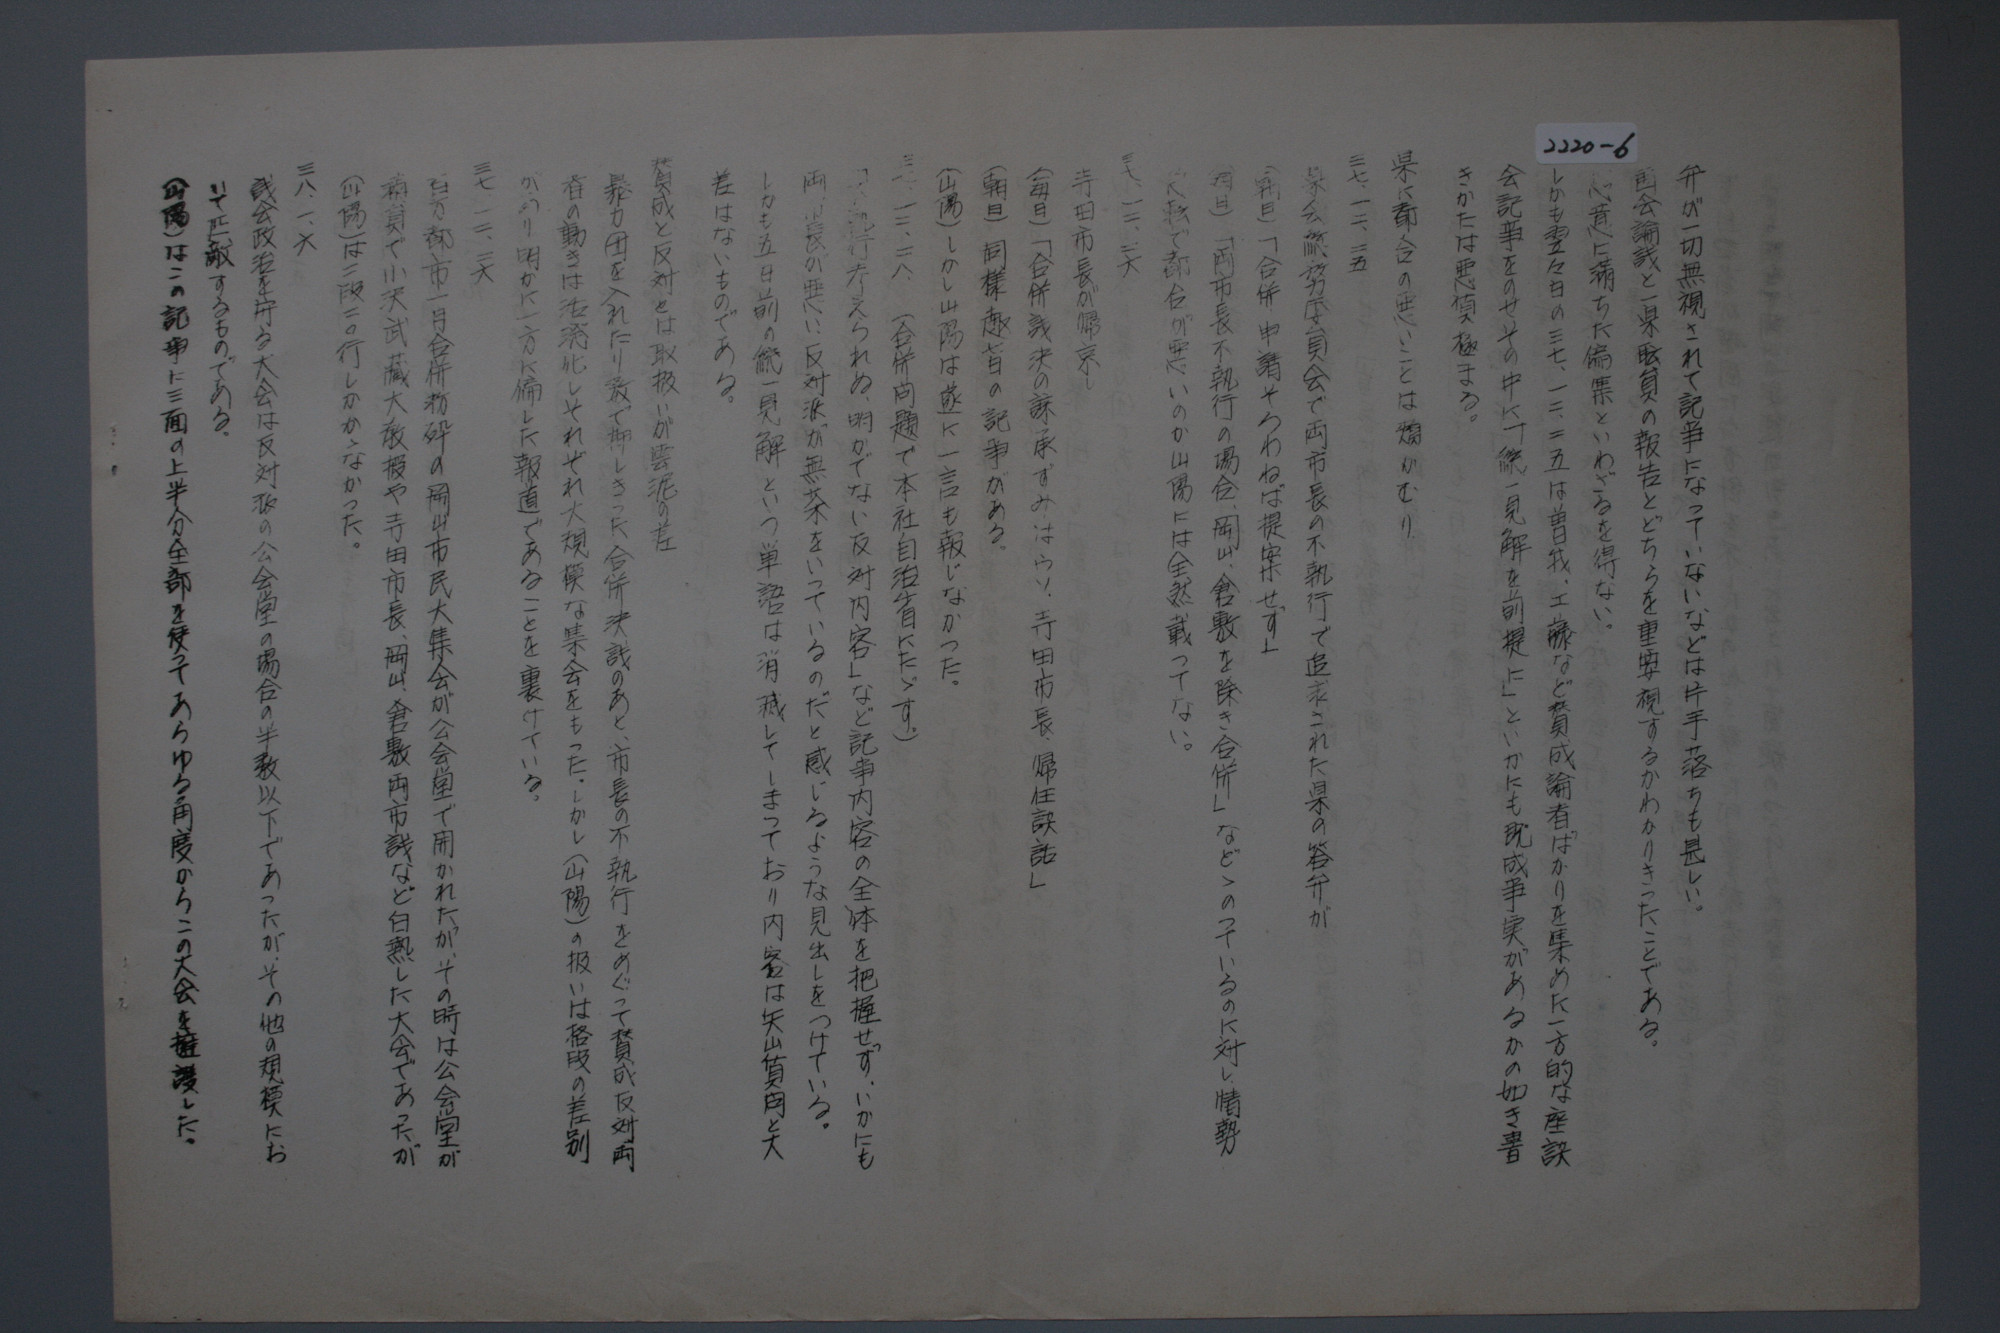 2220-6
弁が一切無視されて記事になっていないなどは片手落ちも甚しい。
国会論議と一県職員の報告とどちらを重要視するかわかりきったことである。
心意に満ちた偏集といわざるを得ない。
しかも翌々日の三七、一二、二五は曽我、工藤など賛成論者ばかりを集めた一方的な座談
会記事をのせその中に「統一見解を前提に」といかにも既成事実があるかの如き書
きかたは悪慎極まる。
県に都合の悪いことは頰かむり
三七、一二、二五
県会総務委員会で両市長の不執行で追求された県の答弁が
(朝日)「合併申請そろわねば提案せず」
(毎日)「両市長不執行の場合、岡山、倉敷を除き合併」などゝのっているのに対し情勢
で都合が悪いのか山陽には全然載ってない。
三七、一二、二六
寺田市長が帰京し
(毎日)「合併議決の諒承ずみはウソ、寺田市長、帰任談話」
(朝日)同様趣旨の記事がある。
(山陽)しかし山陽は遂に一言も報じなかった。
一二、二八、(合併問題で本社自治省にたゞす。)
行考えられぬ、明かでない反対内容」など記事内容の全体を把握せず、いかにも
両市長が悪い反対派が無茶をいっているのだと感じるような見出しをつけている。
しかも五日前の統一見解といつ単語は消滅してしまっており内容は矢山質問と大
差はないものである。
賛成と反対とは取扱いが雲泥の差
暴力団を入れたり数で押しきった合併決議のあと、市長の不執行をめぐって賛成反対両
者の動きは活溌化しそれぞれ大規模な集会をもった。しかし(山陽)の扱いは格段の差別
があり明かに一方に偏した報道であることを裏付けている。
三七、一二、二六
百万都市一月合併粉砕の岡山市民大集会が公会堂で開かれたが、その時は公会堂が
満員で小沢武蔵大教授や寺田市長、岡山、倉敷両市議など白熱した大会であったが
(山陽)は二段二〇行しかかゝなかった。
三八、一、六
議会政治を守る大会は反対派の公会堂の場合の半数以下であったが、その他の規模にお
いて匹敵するものである。
(山陽)はこの記事に三面の上半分全部を使ってあらゆる角度からこの大会を擁護した。